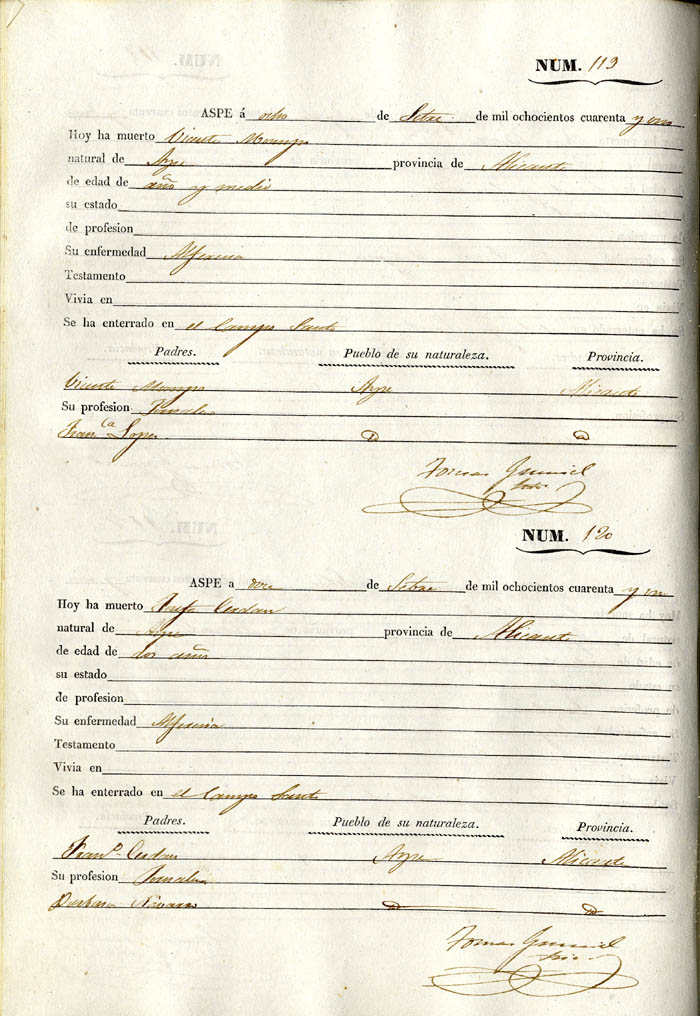 NUM. 119
ASPE á ocho de Setre de mil ochocientos cuarenta y uno
Hoy ha muerto Vicente
natural de Aspe provincia de Alicante
de edad de año y medio
su estado
de profesion
Su enfermedad Alferecia
Testamento
Vivia en
Se ha enterrado en el Campo Santo
Padres. Pueblo de su naturaleza. Provincia.
Vicente Aspe Alicante
Su profesion
Franca Lopez
NUM. 120
ASPE a de Setre de mil ochocientos cuarenta y uno
Hoy ha muerto Cerdan
natural de Aspe provincia de Alicante
de edad de dos años
su estado
de profesion
Su enfermedad Alferecia
Testamento
Vivia en
Se ha enterrado en el Campo Santo
Padres. Pueblo de su naturaleza. Provincia.
Frano Cerdan Aspe Alicante
Su profesion
Barbara Navarro